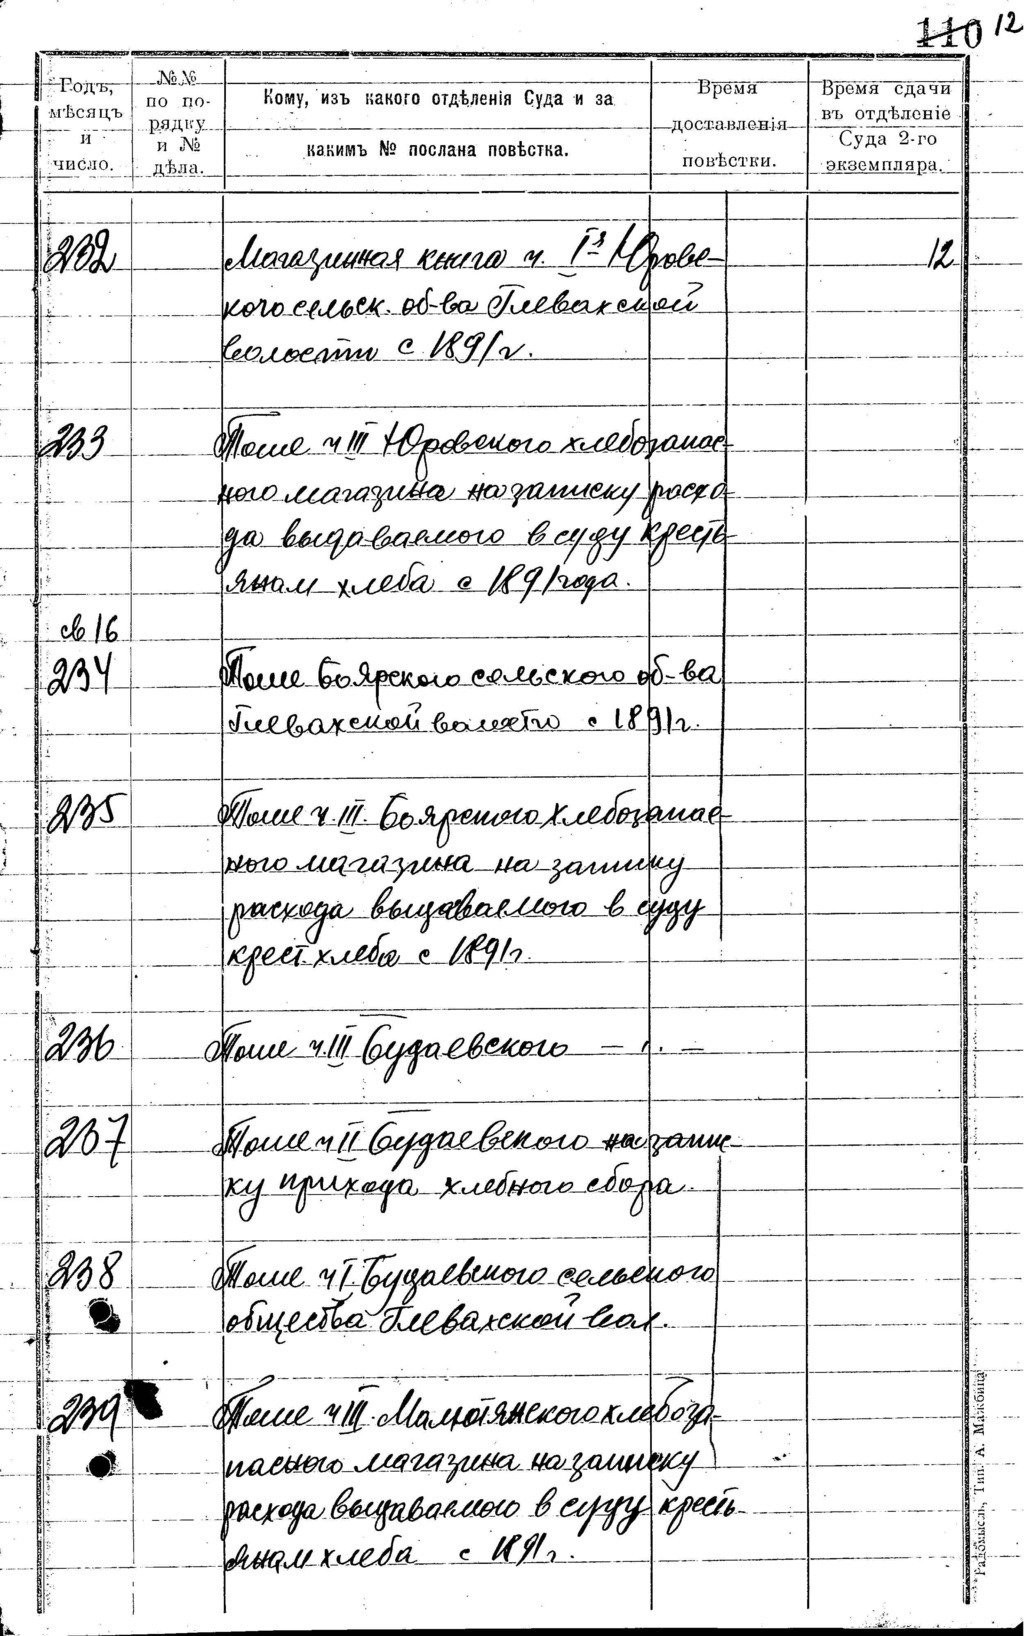 110 12
Годъ, мѣсяцъ и число.
№№ по порядку и № дѣла.
Кому, изъ какого отдѣленія Суда и за
какимъ № послана повѣстка.
Время доставленія повѣстки.
Время сдачи въ отдѣленіе Суда 2-го экземпляра.
232 Магазинная книга ч. I-я Юровс- 12
кого сельск. об-ва Глевахской
волости с 1891 г.
233 Тоже ч III Юровского хлебозапас-
ного магазина на записку расхо-
да выдаваемого в суду кресть-
янам хлеба с 1891 года.
св 16
234 Тоже Боярского сельского об-ва
Глевахской волости с 1891 г.
235 Тоже ч. III. Боярского хлебозапас-
ного магазина на записку
расхода выдаваемого в суду
крест хлеба с 1891 г.
236 Тоже ч. III Будаевского — „ —
237 Тоже ч II Будаевского на запис-
ку прихода хлебного сбора.
238 Тоже ч I. Будаевского сельского
общества Глевахской вол.
239 Тоже ч III. Малютянского хлебоза-
пасного магазина на записку
расхода выдаваемого в суду кресть-
янам хлеба с 1891 г.
Радомысль, Тип. А. Мажбица